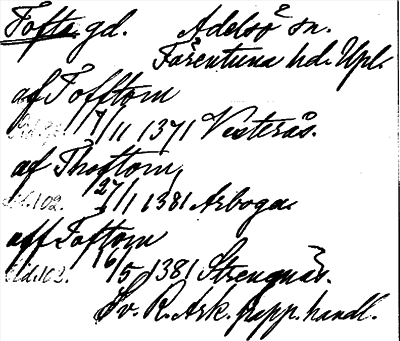 Tofta gd. Adelsö sn.
Färentuna hd. Upl.
af Tofftom
17/11 1371 Vesterås.
af Thoftom
Sid. 102. 27/1 1381 Arboga
aff Toftom
Sid. 102. 16/5 1381 Strengnäs.
Sv. R. Ark. papp. handl.